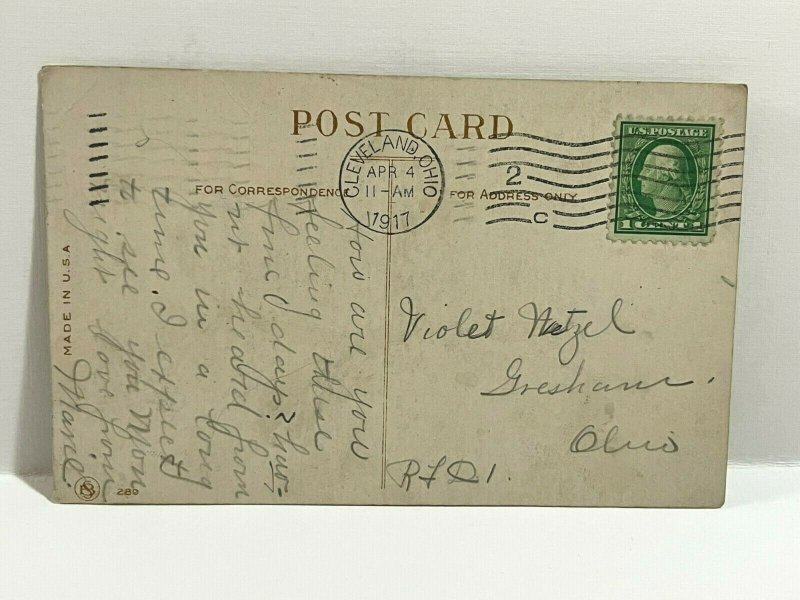 POST CARD
CLEVELAND, OHIO
APR 4
11-AM
1917
2
C
U.S. POSTAGE
1 CENT 1
FOR CORRESPONDENCE
FOR ADDRESS ONLY
How are you
feeling these
fine days? hav-
nt heard from
you in a long
time. I expect
to see you Mon
night love from
Marie
Violet Wetzel
Gresham.
Ohio
RFD 1.
MADE IN U.S.A
280